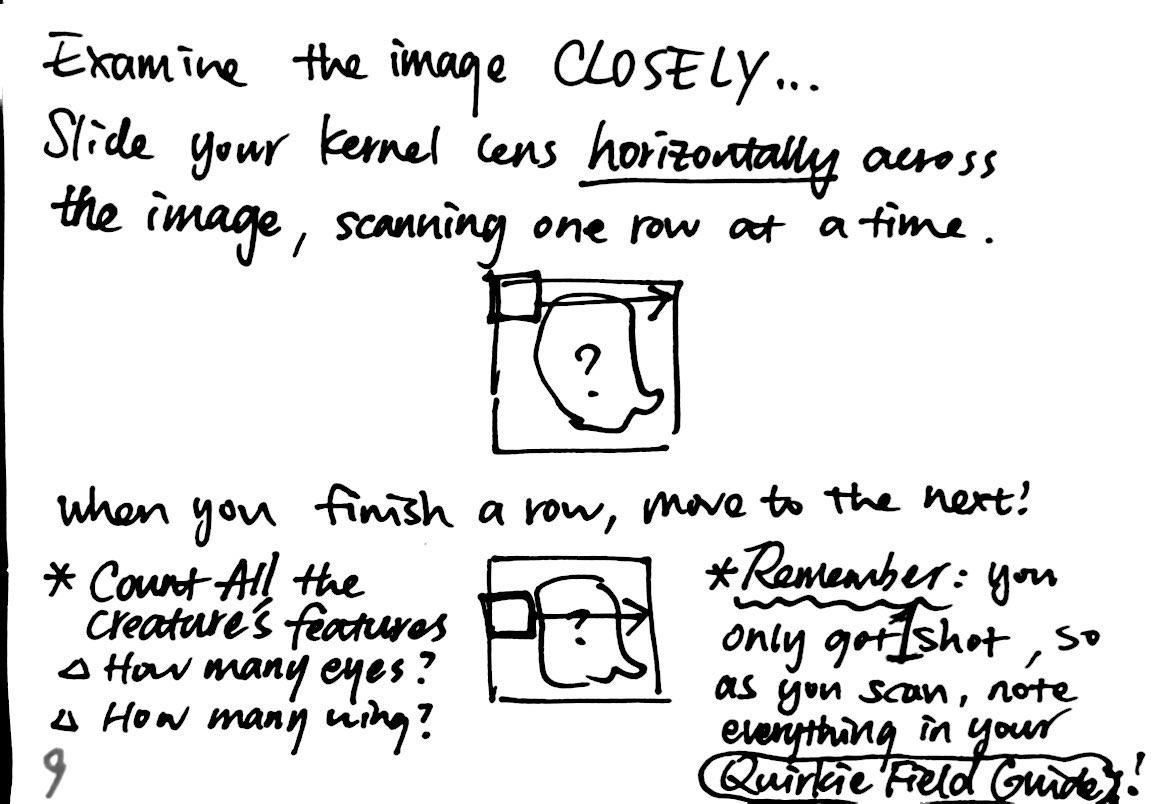 Examine the image CLOSELY...
Slide your kernel lens horizontally across
the image, scanning one row at a time.
?
when you finish a row, move to the next!
?
* Count All the
creature's features
△ How many eyes?
△ How many wing?
* Remember: you
only got 1 shot, so
as you scan, note
everything in your
Quirkie Field Guide!
9